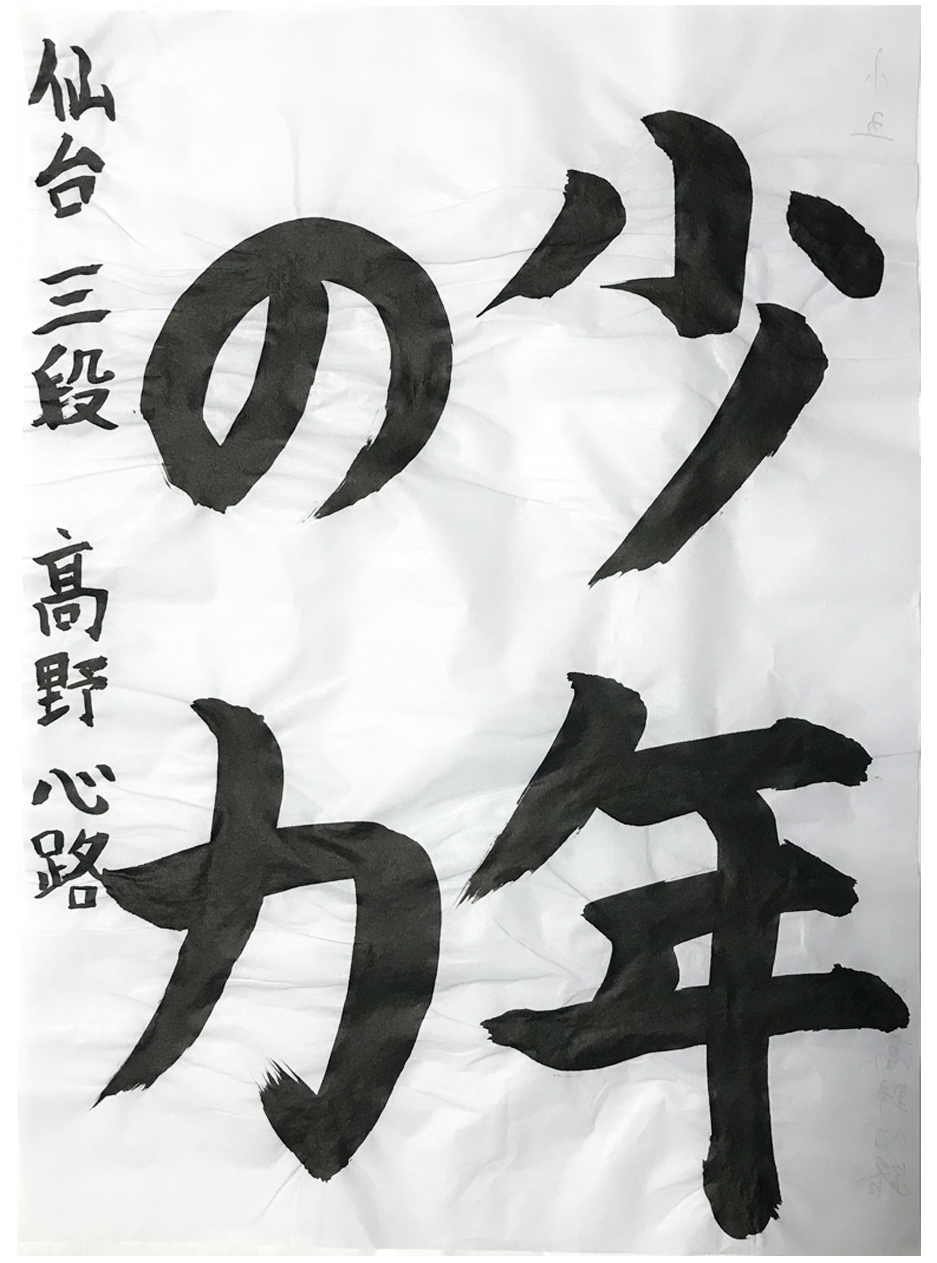 少年
の力
仙台 三段 髙野 心路